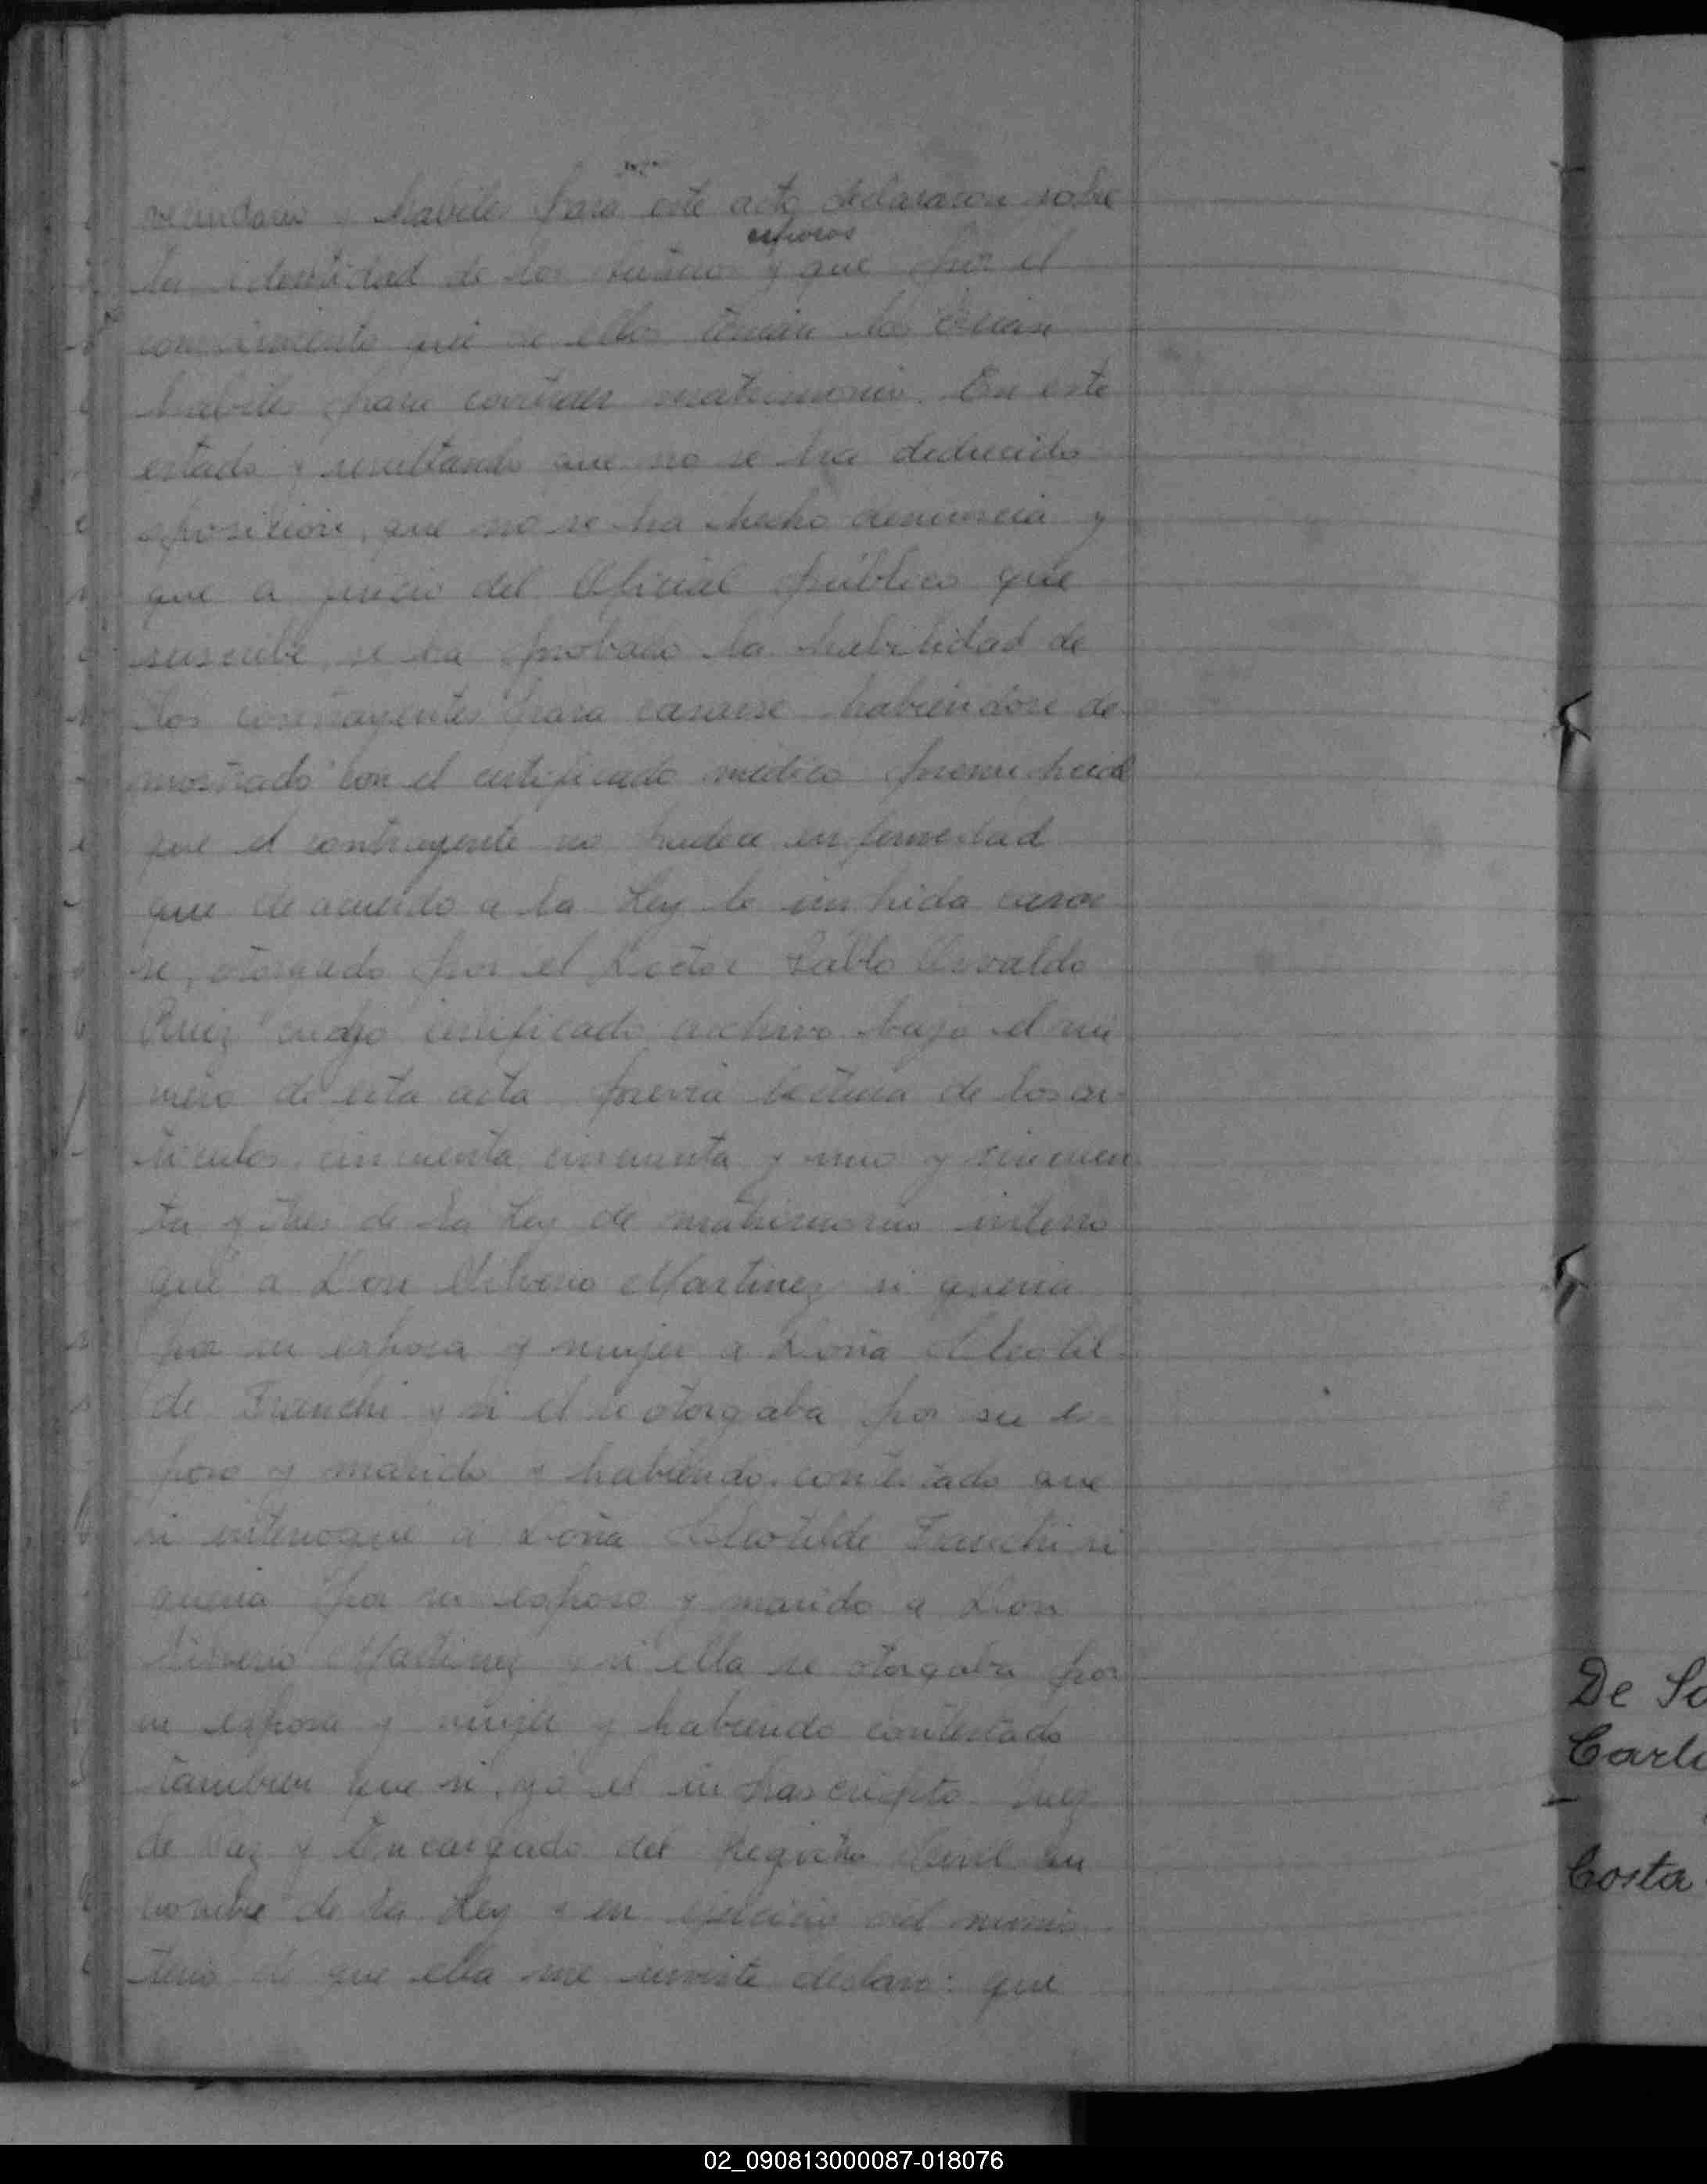 vecindario y habiles para este acto declararon sobre
esposos
la identidad de los futuros y que por el
conocimiento que de ellos tenian los creian
habiles para contraer matrimonio. En este
estado y resultando que no se ha deducido
oposicion, que no se ha hecho denuncia y
que a juicio del Oficial público que
suscribe, se ha probado la habilidad de
los contrayentes para casarse habiendose de-
mostrado con el certificado medico prenupcial
que el contrayente no padece enfermedad
que de acuerdo a la Ley le impida casar
se, otorgado por el Doctor Pablo Osvaldo
Ruiz cuyo certificado archivo bajo el nu
mero de esta acta previa lectura de los ar-
ticulos, cincuenta, cincuenta y uno y cincuen
ta y tres de la Ley de matrimonio interro
gué a Don Silverio Martinez si queria
por su esposa y mujer a Doña Cleotil-
de Franchi y si el se otorgaba por su es-
poso y marido y habiendo contestado que
si interrogué a Doña Cleotilde Franchi si
queria por su esposo y marido a Don
Silverio Martinez y si ella se otorgaba por
su esposa y mujer y habiendo contestado
tambien que si, yo el infrascripto Juez
de Paz y Encargado del Registro Civil en
nombre de la Ley y en ejercicio del minis-
terio de que ella me inviste declaro: que
De
Costa
02_090813000087-018076